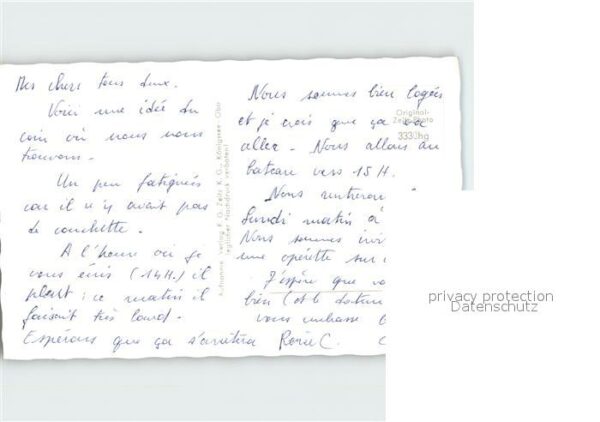 Mes chers tous deux.
Voici une idée du
coin où nous nous
trouvons.
Un peu fatiguées
car il n'y avait pas
de couchette.
A l'heure où je
vous écris (14H.) il
pleut: ce matin il
faisait très lourd.
Espérons que ça s'arrêtera
Aufnahme u. Verlag F. G. Zeitz K. G., Königssee/Obb.
Jeglicher Nachdruck verboten!
Nous sommes bien logées
et je crois que ça va
aller. Nous allons au
bateau vers 15H.
Nous rentrerons
Lundi matin à
Nous sommes
une opérette sur
J'espère que
bien (et le
vous embrasse
Renée C.
Original-
Zeitz-Photo
privacy protection
Datenschutz